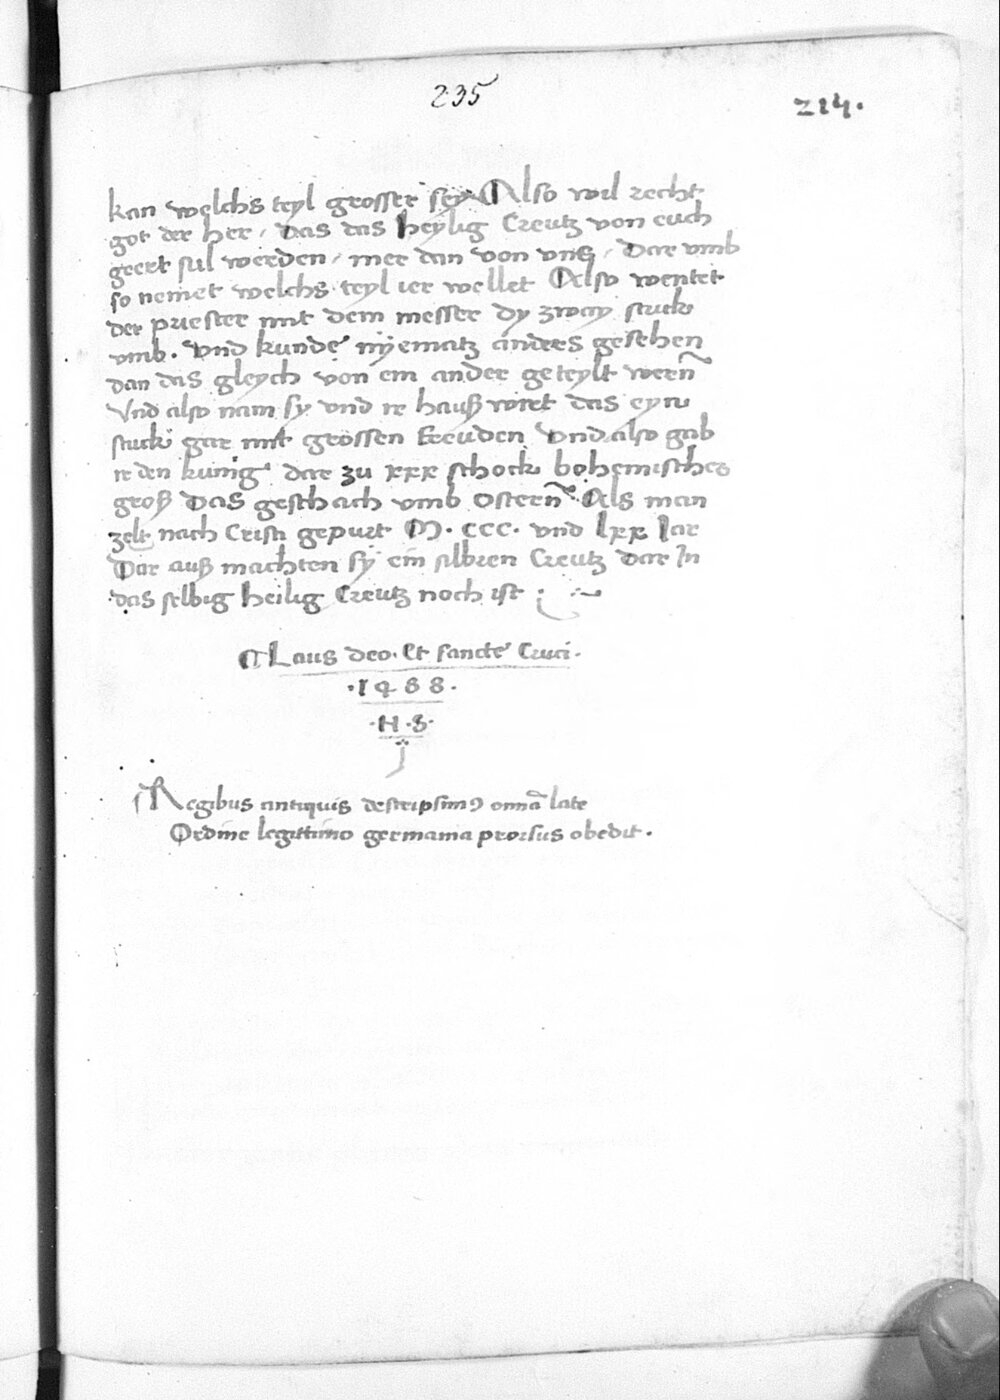 235
214.
kan welchs teyl grosser sey Also wil recht
got der her / Das das heylig Creutz von euch
geert sul werden / mer dan von vns / Dar vmb
so nemet welchs teyl ier wellet Also wentet
der priester mit dem messer dy zway stuck
vmb . vnd kunde nyematz anders gesehen
dan das gleych von ein ander geteylt wern̄
Vnd also nam sy vnd ir hauß wirt das eyn
stuck gar mit grossen freuden vnd also gab
ir den kunig dar zu xxx schock bohemisches
groß Das geschach vmb Ostern̄ . Als man
zelt nach Cristi gepurt M . ccc . vnd lxx Iar
Dar auß machten sy ein silbren Creutz dar In
das selbig heilig Creutz noch ist :
Laus deo . Et sancte Cruci .
. 1488 .
. H . S .
Regibus antiquis descripsimꝰ omnā late
Ordine legittimo germania prorsus obedit .